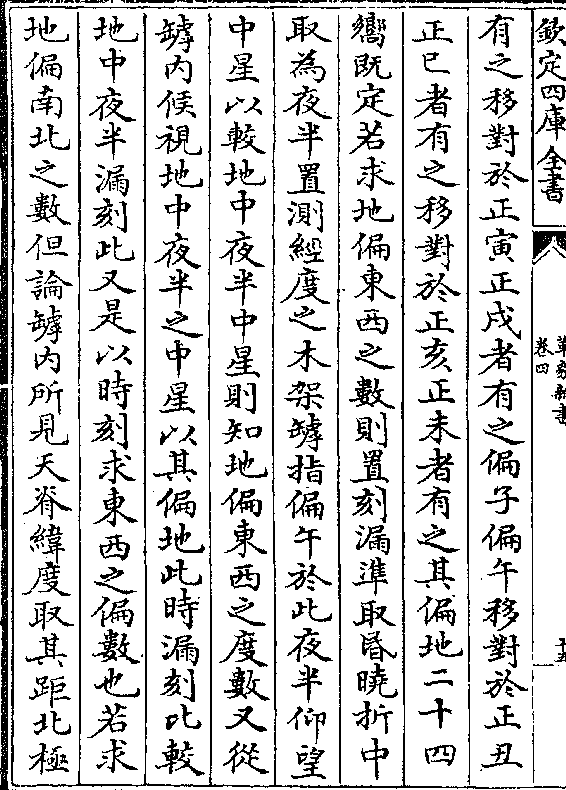 欽定四庫全書
革象新書
卷四
十五
有之移對於正寅正戌者有之偏子偏午移對於正丑
正巳者有之移對於正亥正未者有之其偏地二十四
嚮既定若求地偏東西之數則置刻漏準取昏曉折中
取為夜半置測經度之木架罅指偏午於此夜半仰望
中星以較地中夜半中星則知地偏東西之度數又從
罅内候視地中夜半之中星以其偏地此時漏刻比較
地中夜半漏刻此又是以時刻求東西之偏數也若求
地偏南北之數但論罅内所見天脊緯度取其距北極